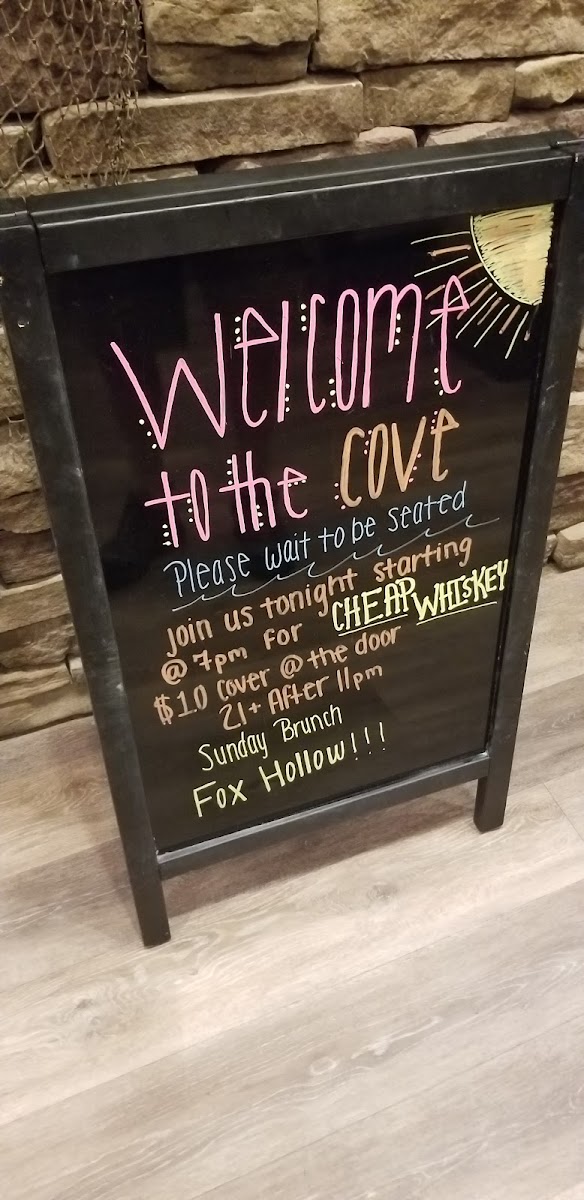 Welcome
to the Cove
Please wait to be seated
Join us tonight starting
@ 7pm for CHEAP WHISKEY
$10 cover @ the door
21+ After 11pm
Sunday Brunch
Fox Hollow!!!